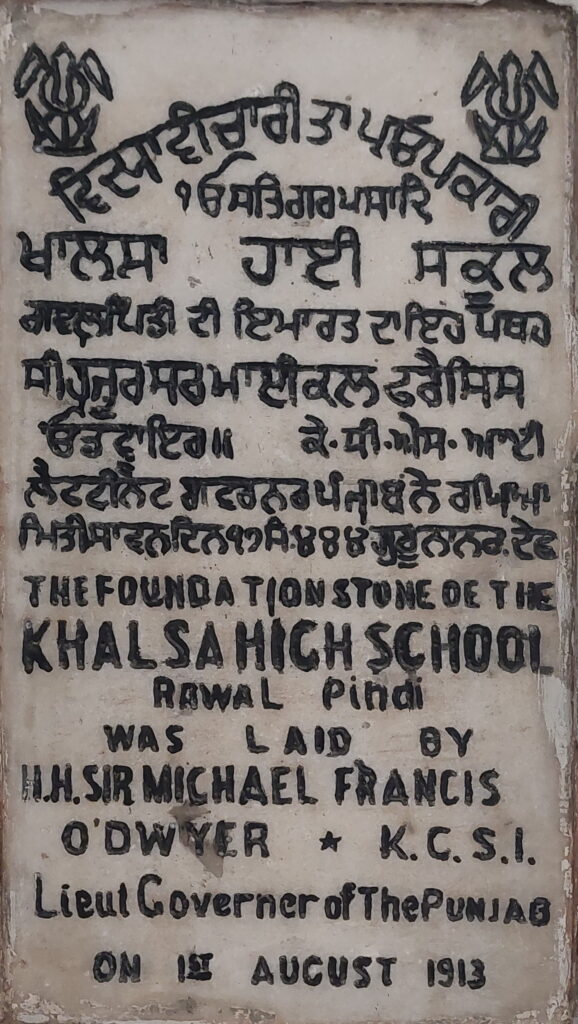 ਵਿਦਯਾ ਵੀਚਾਰੀ ਤਾ ਪਰਉਪਕਾਰੀ
ੴ ਸਤਿਗਰ ਪ੍ਰਸਾਦਿ
ਖਾਲਸਾ ਹਾਈ ਸਕੂਲ
ਰਾਵਲਪਿੰਡੀ ਦੀ ਇਮਾਰਤ ਦਾ ਇਹ ਪਥਰ
ਸ੍ਰੀ ਹਜੂਰ ਸਰ ਮਾਈਕਲ ਫਰੈਂਸਿਸ
ਓਡਵਾਇਰ॥ ਕੇ·ਸੀ·ਐਸ·ਆਈ
ਲੈਫਟੀਨੈਂਟ ਗਵਰਨਰ ਪੰਜਾਬ ਨੇ ਰਖਿਆ
ਮਿਤੀ ਸਾਵਨ ਦਿਨ ੧੭ ਸੰ·੪੪੪ ਗੁਰੂ ਨਾਨਕ ਦੇਵ
THE FOUNDATION STONE OE THE
KHALSA HIGH SCHOOL
RAWAL Pindi
WAS LAID BY
H.H. SIR MICHAEL FRANCIS
O'DWYER ★ K.C.S.I.
Lieut Governer of The PUNJAB
ON 1ST AUGUST 1913